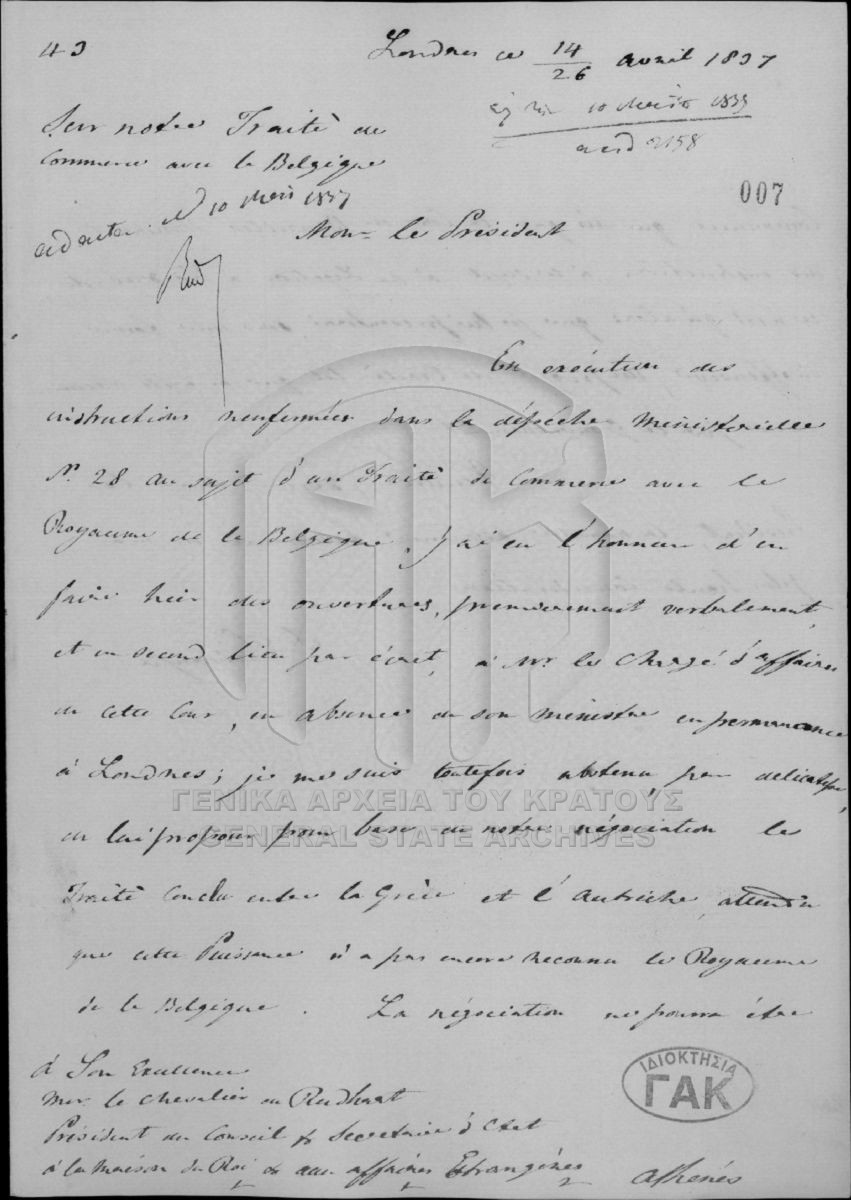 43
Londres ce 14/26 avril 1837
Sur notre Traité de
Commerce avec la Belgique
10 1837
2158
ad acta. 10 Mars 1837
007
Monr le Président
En exécution des
instructions renfermées dans la dépêche Ministerielle
Nr. 28 au sujet d'un Traité de Commerce avec le
Royaume de la Belgique, j'ai eu l'honneur d'en
faire hier des ouvertures, premierement verbalement,
et en second lieu par écrit, à Mr. le Chargé d'affaires
de cette Cour, en absence de son ministre en permanence
à Londres; je me suis toutefois abstenu par délicatesse,
de lui proposer pour base de notre négociation le
Traité conclu entre la Grèce et l'Autriche, attendu
que cette Puissance n'a pas encore reconnu le Royaume
de la Belgique. La négociation ne pourra être
à Son Excellence
Mr. le Chevalier de Rudhart
Président du Conseil & Secretaire d'Etat
à la Maison du Roi & aux affaires Etrangères
Athènes
ΓΕΝΙΚΑ ΑΡΧΕΙΑ ΤΟΥ ΚΡΑΤΟΥΣ
GENERAL STATE ARCHIVES
ΙΔΙΟΚΤΗΣΙΑ
ΓΑΚ